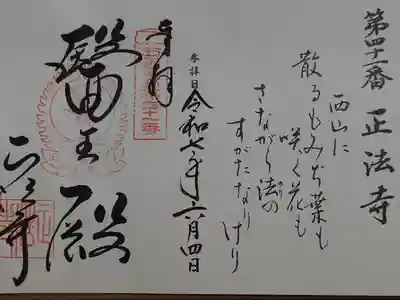 第四十一番 正法寺
西山に
散るもみぢ葉も
咲く花も
さながら法の
すがたなりけり
参拝日 令和七年六月四日
奉拝
醫王殿
正法寺